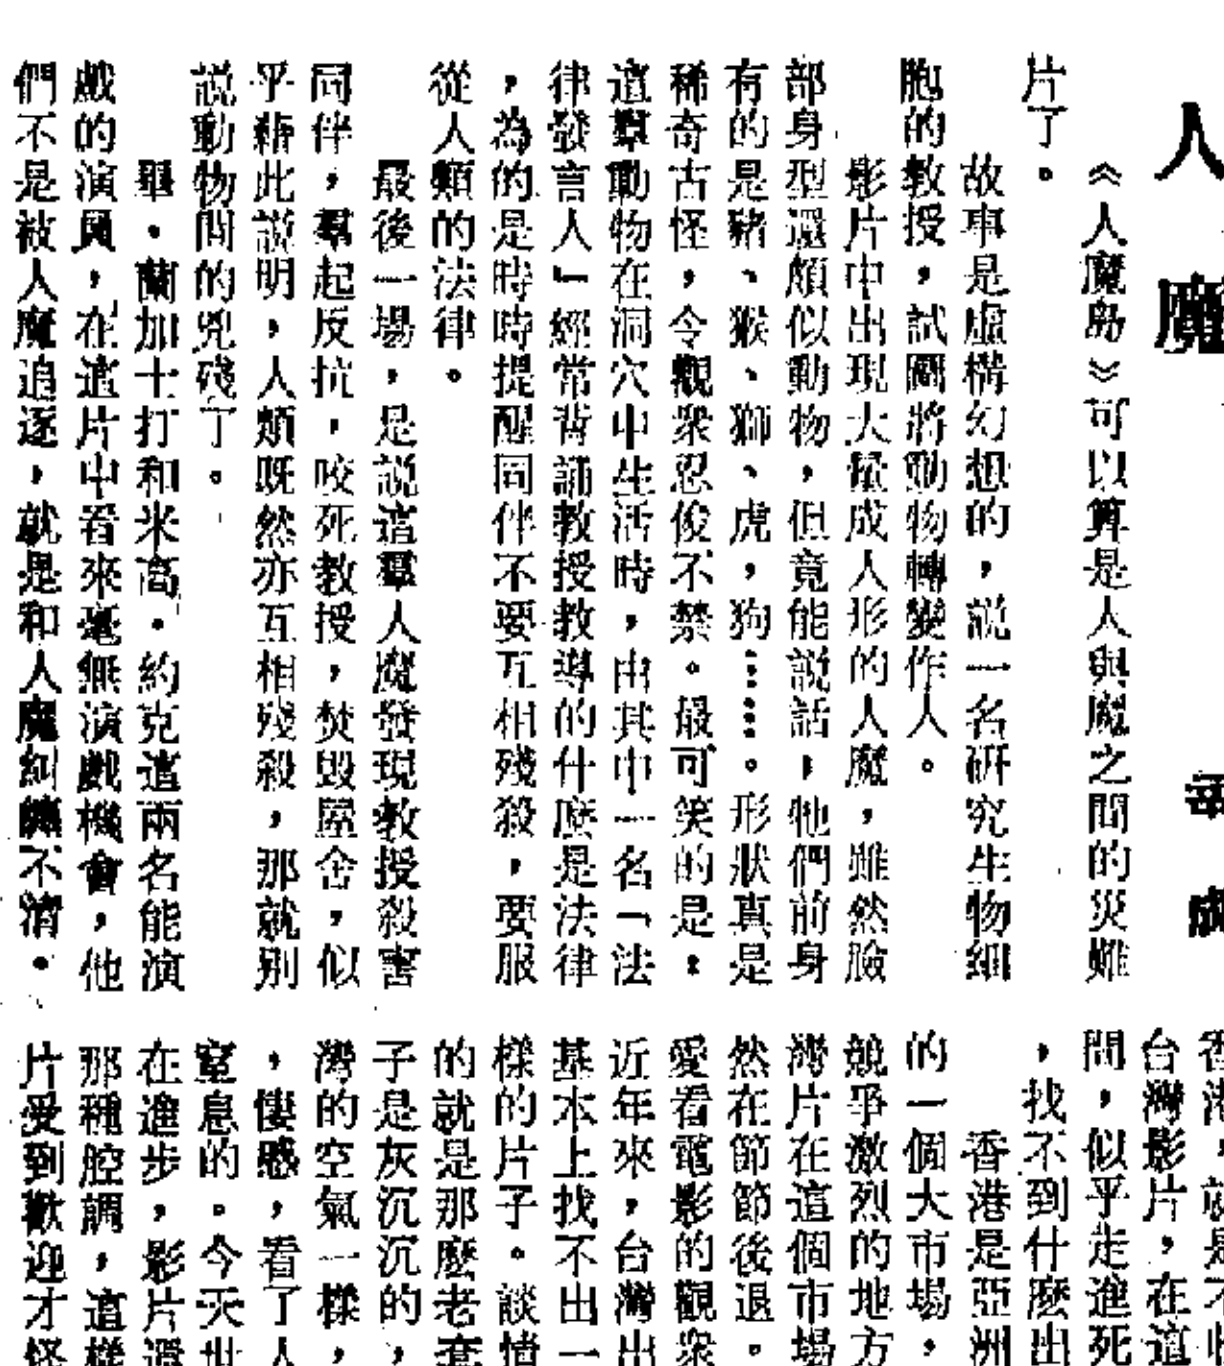 人魔
《人魔島》可以算是人與魔之間的災難
片了。
故事是虛構幻想的，說一名研究生物細
胞的教授，試圖將動物轉變作人。
影片中出現大量成人形的人魔，雖然臉
部身型還頗似動物，但竟能說話，牠們前身
有的是豬、猴、獅、虎，狗……。形狀真是
稀奇古怪，令觀衆忍俊不禁。最可笑的是：
這羣動物在洞穴中生活時，由其中一名「法
律發言人」經常背誦教授教導的什麼是法律
，為的是時時提醒同伴不要互相殘殺，要服
從人類的法律。
最後一場，是說這羣人魔發現教授殺害
同伴，羣起反抗，咬死教授，焚毀屋舍，似
乎藉此說明，人類既然亦互相殘殺，那就別
說動物間的兇殘了。
畢・蘭加士打和米高・約克這兩名能演
戲的演員，在這片中看來毫無演戲機會，他
們不是被人魔追逐，就是和人魔糾纏不清。
台灣影片，在這
間，似乎走進死
，找不到什麼出
香港是亞洲
的一個大市場，
競爭激烈的地方
灣片在這個市場
然在節節後退。
愛看電影的觀衆
近年來，台灣出
基本上找不出一
樣的片子。談情
的就是那麼老套
子是灰沉沉的，
灣的空氣一樣，
，悽感，看了人
窒息的。今天世
在進步，影片還
那種腔調，這樣
片受到歡迎才怪